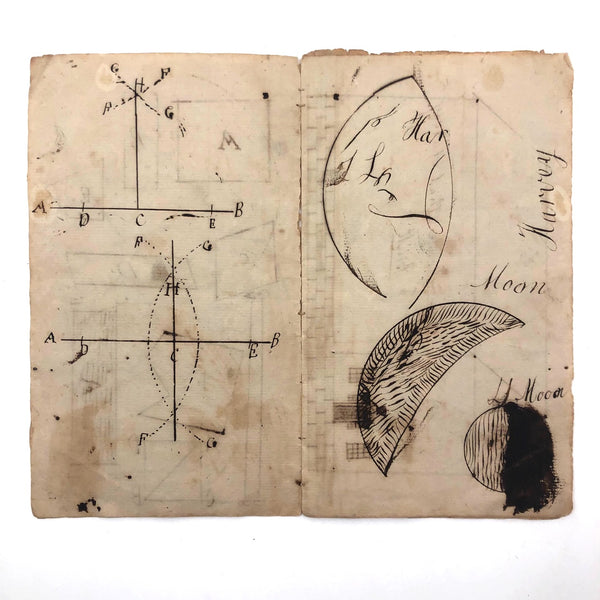 G F
H
F G
F
A D C E B
F G
H
A D C E B
F G
Har
Harvey
Moon
Moon